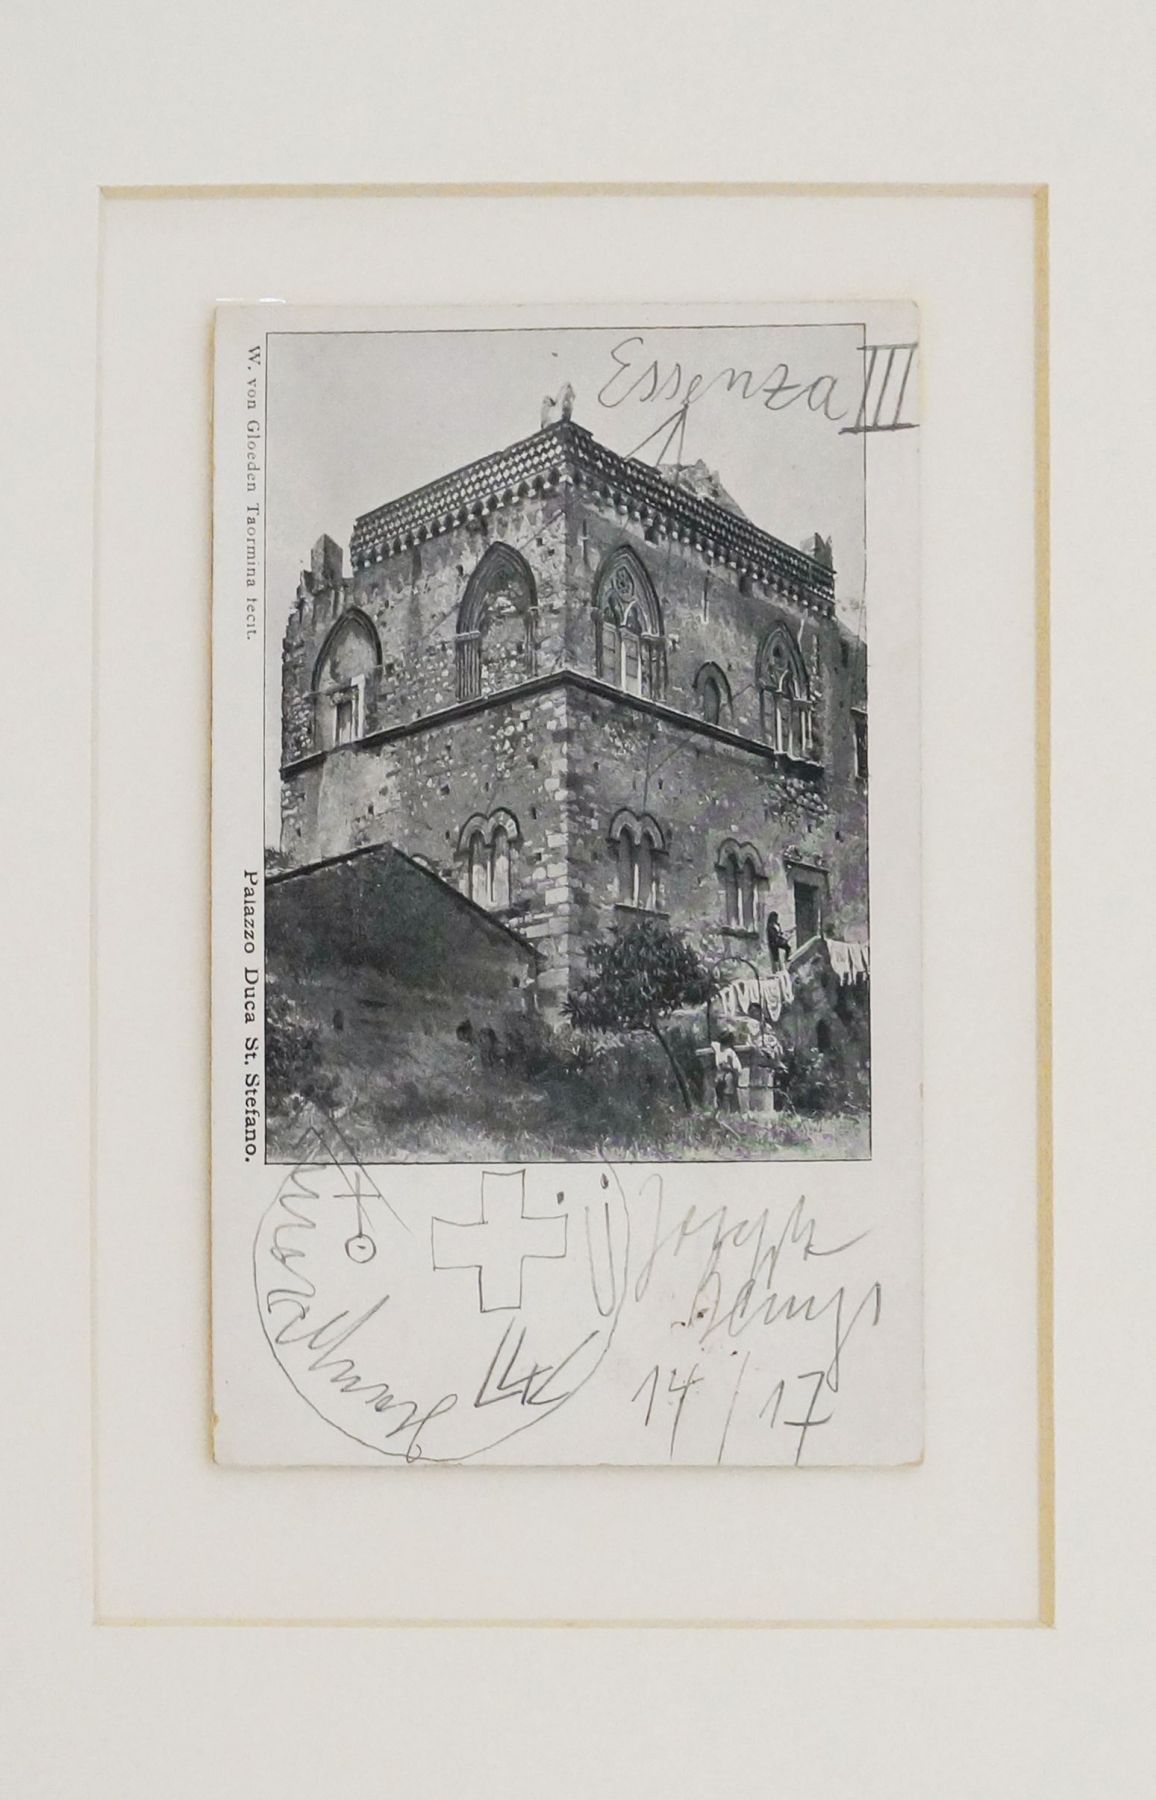 Essenza III
W. von Gloeden Taormina fecit.
Palazzo Duca St. Stefano.
Joseph
Beuys
14/17